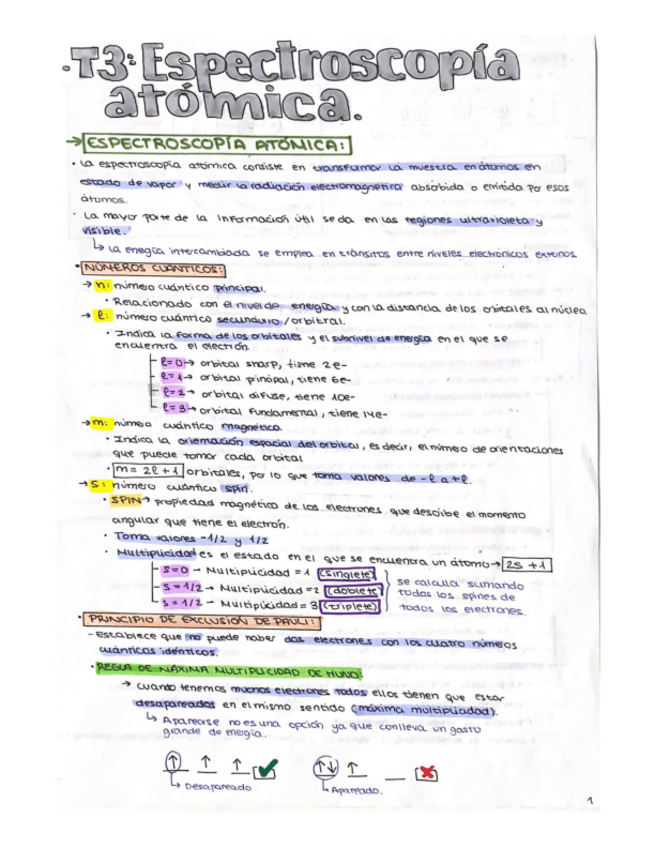 ·T3: Espectroscopía
atómica.
→ ESPECTROSCOPÍA ATÓMICA:
· La espectroscopía atómica consiste en transformar la muestra en átomos en
estado de vapor y medir la radiación electromagnética absorbida o emitida por esos
átomos.
· La mayor parte de la información útil se da en las regiones ultravioleta y
visible.
↳ La energía intercambiada se emplea en tránsitos entre niveles electrónicos externos.
· NÚMEROS CUÁNTICOS:
→ n: número cuántico principal.
· Relacionado con el nivel de energía y con la distancia de los orbitales al núcleo
→ l: número cuántico secundario / orbitral.
· Indica la forma de los orbitales y el subnivel de energía en el que se
encuentra el electrón.
l=0 → orbital sharp, tiene 2e-
l=1 → orbital principal, tiene 6e-
l=2 → orbital difuse, tiene 10e-
l=3 → orbital fundamental, tiene 14e-
→ m: número cuántico magnético.
· Indica la orientación espacial del orbital, es decir, el número de orientaciones
que puede tomar cada orbital
· m = 2l + 1 orbitales, por lo que toma valores de -l a +l.
→ s: número cuántico spin.
· SPIN → propiedad magnética de los electrones que describe el momento
angular que tiene el electrón.
· Toma valores -1/2 y 1/2
· Multiplicidad es el estado en el que se encuentra un átomo → 2s + 1
s=0 → Multiplicidad = 1 (singlete)
s=1/2 → Multiplicidad = 2 (doblete)
s=1/2 → Multiplicidad = 3 (triplete)
se calcula sumando
todos los spines de
todos los electrones.
· PRINCIPIO DE EXCLUSIÓN DE PAULI:
- Establece que no puede haber dos electrones con los cuatro números
cuánticos idénticos.
· REGLA DE MÁXIMA MULTIPLICIDAD DE HUND:
→ cuando tenemos muchos electrones todos ellos tienen que estar
desapareados en el mismo sentido (máxima multiplicidad).
↳ Aparearse no es una opción ya que conlleva un gasto
grande de energía.
↑ ↑ ↑ ✓ ↑↓ ↑ ✗
↳ Desapareado ↳ Apareado.
1